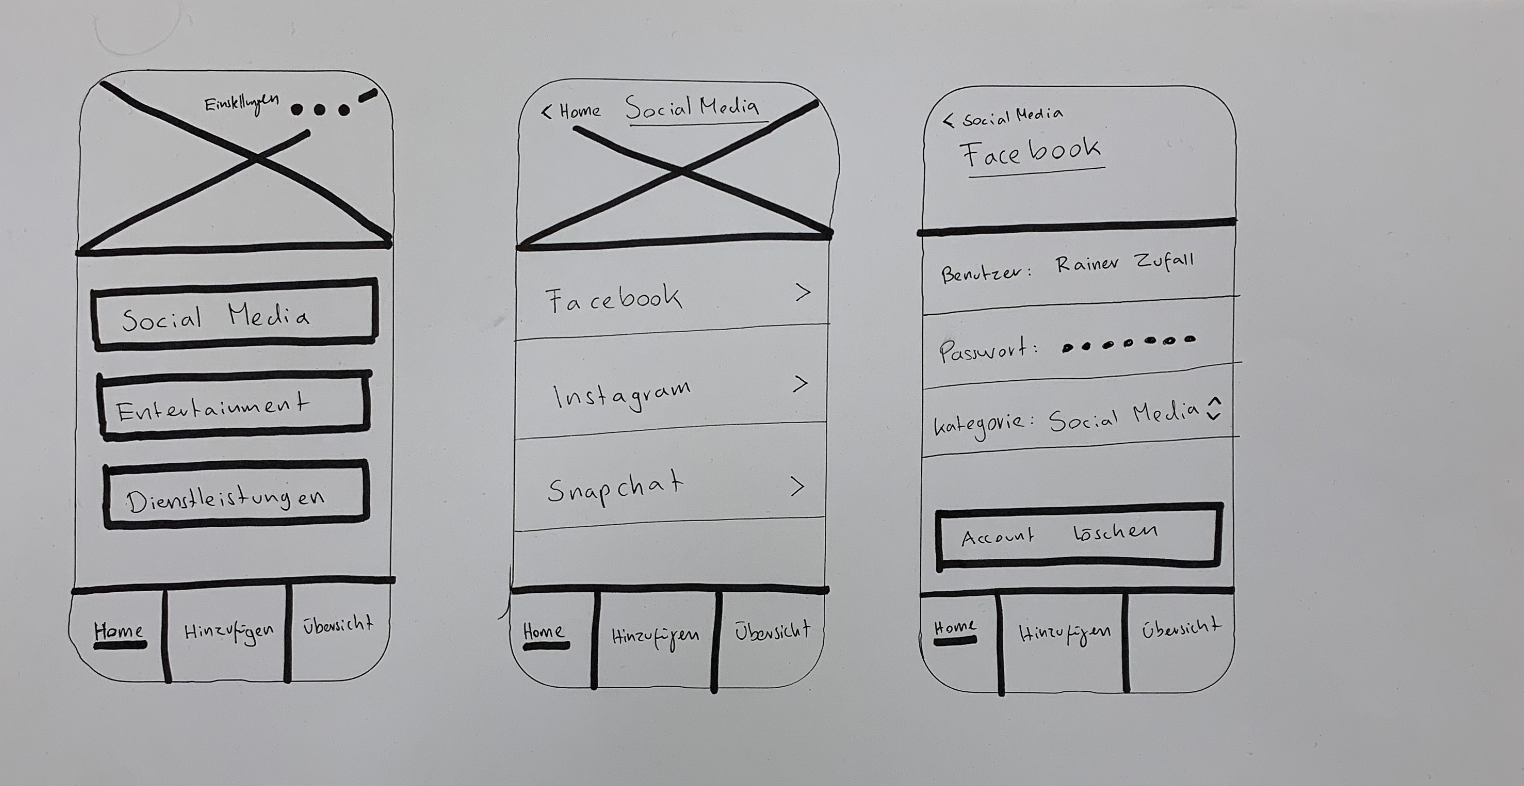 Einstellungen
Social Media
Entertainment
Dienstleistungen
Home Hinzufügen Übersicht
< Home Social Media
Facebook >
Instagram >
Snapchat >
Home Hinzufügen Übersicht
< Social Media
Facebook
Benutzer: Rainer Zufall
Passwort: •••••••
Kategorie: Social Media
Account löschen
Home Hinzufügen Übersicht